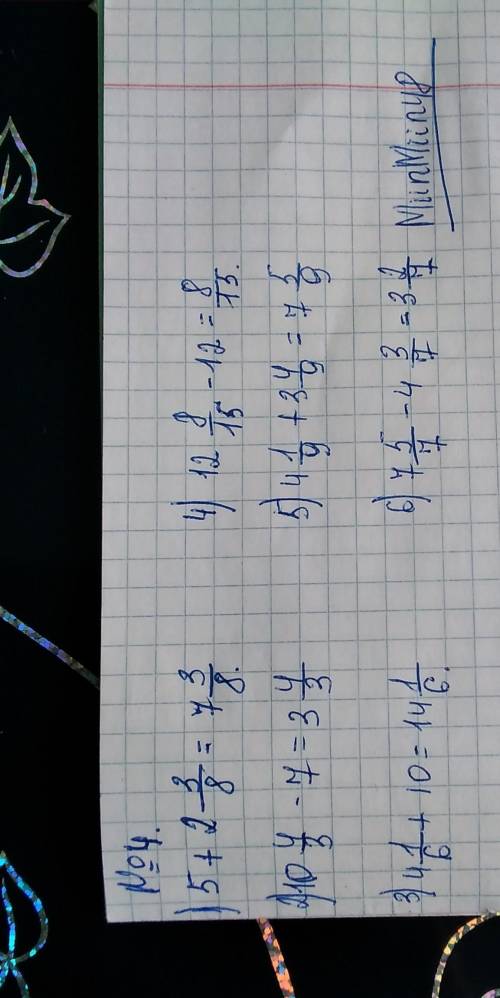 № 4.
1) 5 + 2 3/8 = 7 3/8.
2) 10 4/3 - 7 = 3 4/3
3) 4 1/6 + 10 = 14 1/6.
4) 12 8/15 - 12 = 8/15.
5) 4 1/9 + 3 4/9 = 7 5/9
6) 7 5/7 - 4 3/7 = 3 2/7
MiinMiiny8